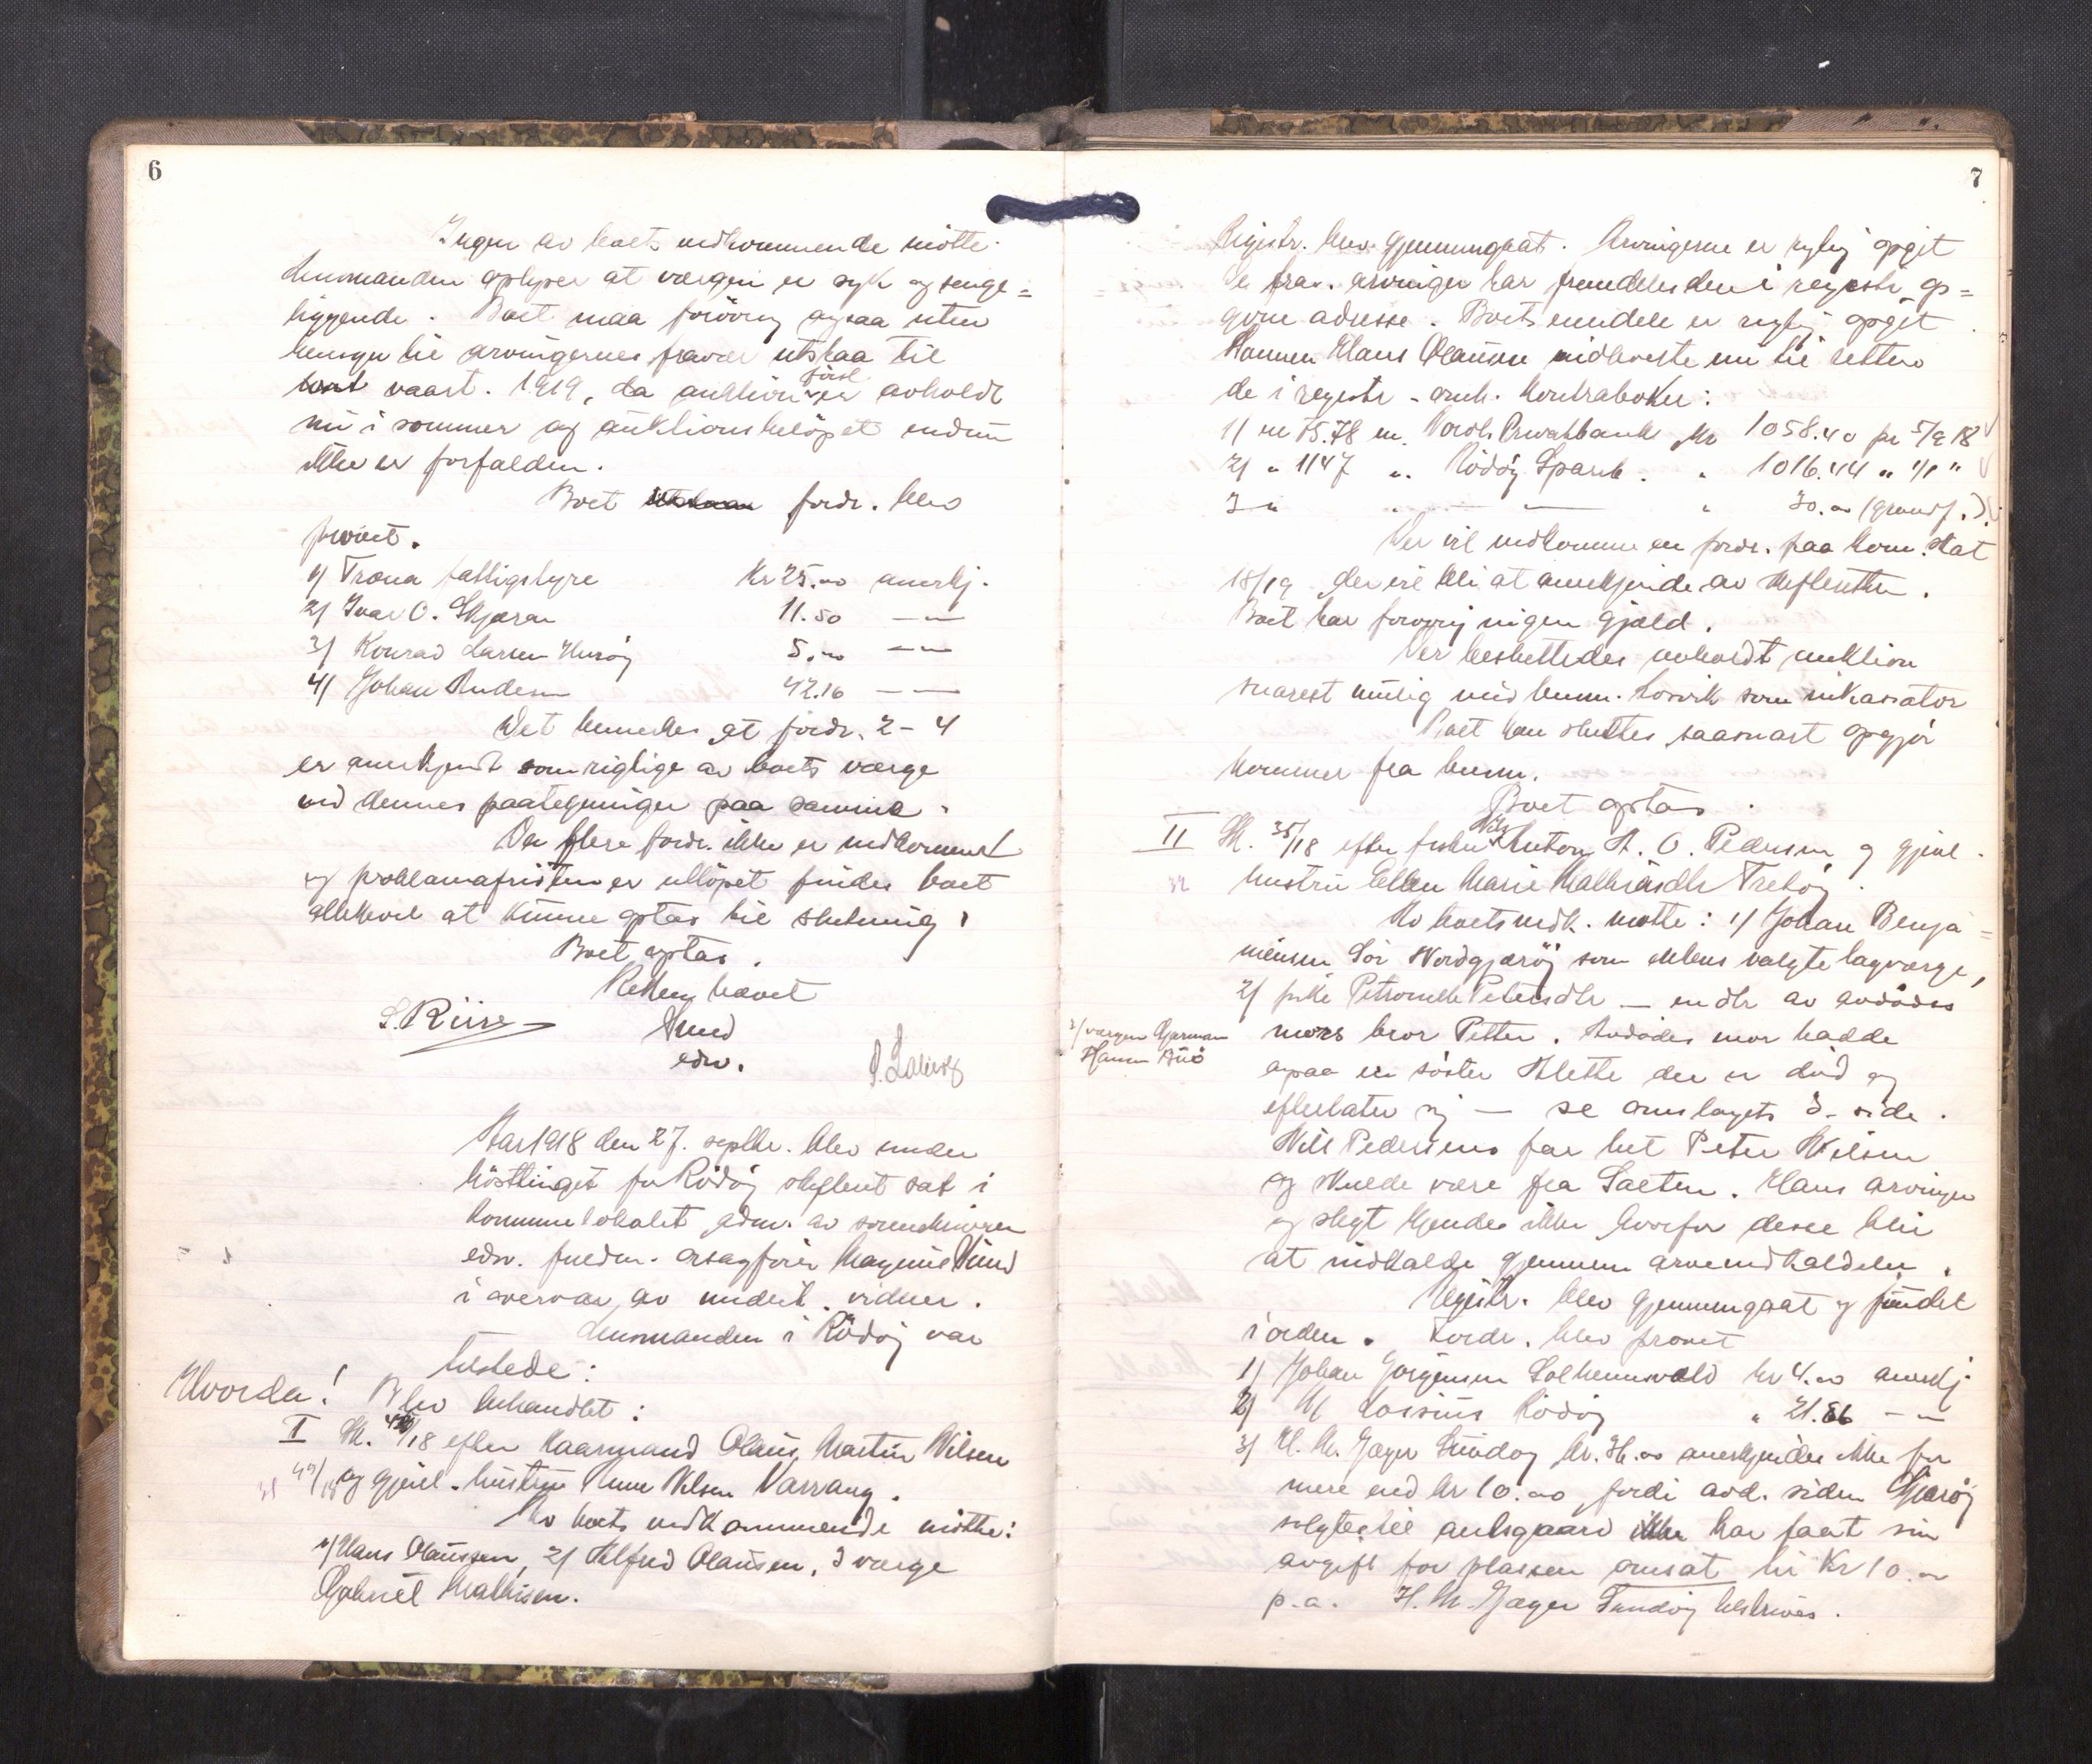 6
Ingen av boets vedkommende møtte.
Lensmanden oplyser at vergen er syk og senge=
liggende. Boet maa forøvrig ogsaa uten
hensyn til arvingernes fravær utstaa til
vaart. 1919, da auktion først er avholdt
nu i sommer og auktionsbeløpet endnu
ikke er forfalden.
Boet fordr. blev
prøvet.
1) Træna fattigstyre Kr 25.00 anerkj.
2) Ivar O. Skjæran 11.50 — " —
3) Konrad Larsen Husøy 5.00 — " —
4) Johan Andersen 42.16 — " —
Det bemerkes at fordr. 2-4
er anerkjendt som rigtige av boets værge
ved dennes paategninger paa samme.
Da flere fordr. ikke er indkommet
og proklamafristen er utløpet findes boet
allikevel at kunne optas til slutning.
Boet optas.
Retten hævet
S. Riise Lund
edsv.
Aar 1918 den 27. septbr. blev under
høsttinget for Rødøy skifteret sat i
kommunelokalet adm. av sorenskriveren
edsv. fuldm. orsagfører Magnus Lund
i overvær av undert. vidner.
Lensmanden i Rødøy var
tilstede:
Hvorda! Blev behandlet:
I Sk. /18 efter kaarmand Olaus Martin Nilsen
49/18 og gjenl. hustru Anne Nilsen Varrang.
Av boets vedkommende møtte:
1) Hans Olaussen, 2) Alfred Olausen, 3 værge
Gabriel Mathisen.
7
Registr. blev gjennemgaat. Arvingerne er rigtig opgit
De frav. arvinger har fremdeles den i registr. op=
givne adresse. Boets eiendele er rigtig opgit
Sønnen Hans Olausen indleverte nu til retten
de i registr. omh. kontrabøker:
1) nr 75.78 m. Nordl. Privatbank Kr 1058.40 pr 5/9 18
2) " 1147 " Rødøy Spareb. " 1016.44 " 1/1 "
3 " — " — " 30.00 (grundf.).
Der vil indkomme en fordr. paa kom. skat
18/19 der vil bli at anerkjende av skifteretten.
Boet har forøvrig ingen gjæld.
Der besluttedes avholdt auktion
snarest mulig med lensm. Lorvik som inkassator
Boet kan sluttes saasnart opgjør
kommer fra lensm.
Boet optas.
II Sk. 35/18 efter fisker Nils Anton A. O. Pedersen og gjenl.
hustru Ellen Marie Mathiasdtr Treløy.
Av boets vedk. møtte: 1) Johan Benja=
minsen Sør Nordgjærøy som enkens valgte lagværge,
2) pike Petronelle Petersdtr — en dtr av avdødes
2/ værgen Hjerman
Hansen Buø
mors bror Petter. Avdødes mor hadde
ogsaa en søster Alette der er død og
efterlater sig — se omslagets 3. side.
Nils Pedersens far het Peter Nilsen
og skulde være fra Salten. Hans arvinger
og slegt kjendes ikke hvorfor desse blir
at indkalde gjennem arveindkaldelse.
Registr. blev gjennemgaat og fundet
i orden. Fordr. blev prøvet
1) Johan Jørgensen Selhennvold kr 4.00 anerkj
2) Rødøy " 21.86 — " —
3) H. M. Jæger Sundøy kr. 36.00 anerkjendes ikke for
mere end kr 10.00 fordi avd. siden Gjerøy
solgtes til amtsgaard har faat sin
avgift for plassen omsat til Kr 10.00
p.a. H. M. Jæger Sundøy tilskrives.